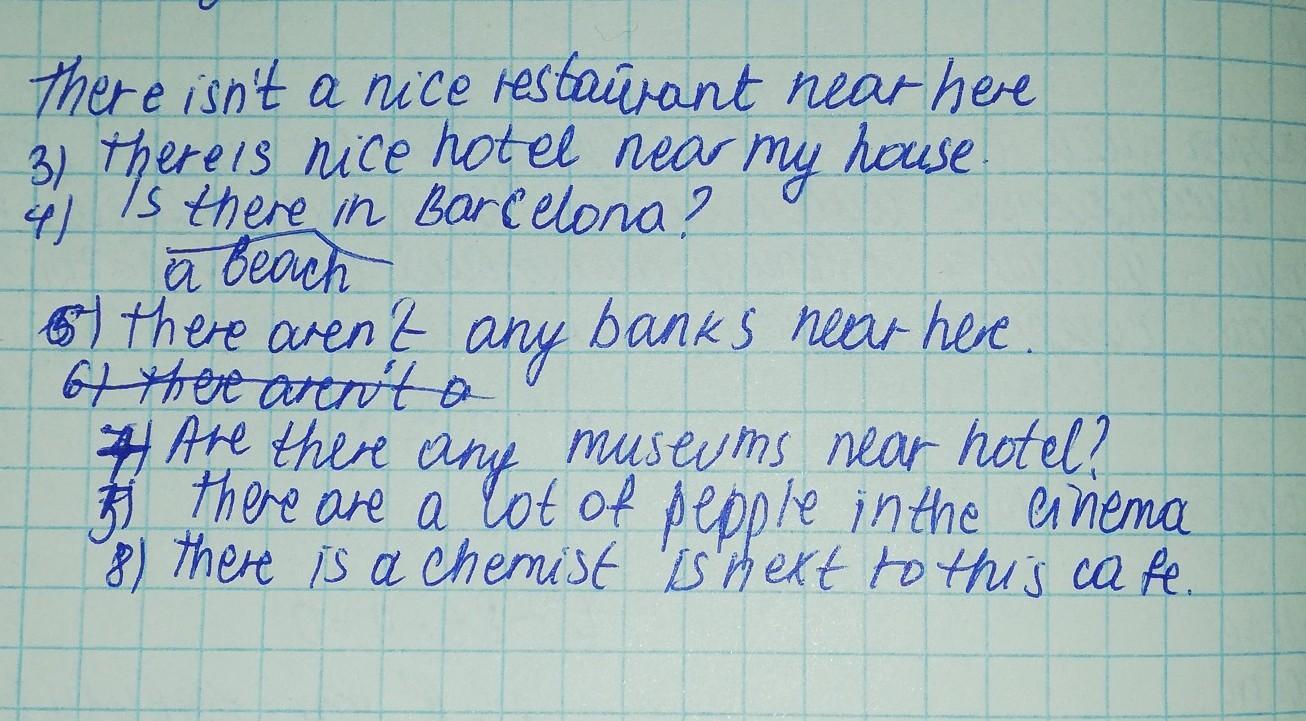 There isn't a nice restaurant near here
3) There is nice hotel near my house.
4) Is there in Barcelona?
a beach
5) There aren't any banks near here.
6) There aren't a
Are there any museums near hotel?
There are a lot of people in the cinema
8) There is a chemist is next to this cafe.